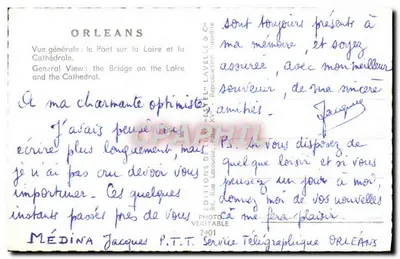 ORLEANS
Vue générale : le Pont sur la Loire et la
Cathédrale.
General View : the Bridge on the Loire
and the Cathedral.
A ma charmante optimiste,
J'avais pensé vous
écrire plus longuement, mais
je n'ai pas cru devoir vous
importuner. Ces quelques
instants passés près de vous
sont toujours présents à
ma mémoire, et soyez
assurée, avec mon meilleur
souvenir, de ma sincère
amitié.
Jacques
P.S. Si vous disposez de
quelque loisir et si vous
pensez un jour à moi,
donnez moi de vos nouvelles
çà me fera plaisir.
PHOTO
VERITABLE
2401
MÉDINA Jacques P.T.T. Service Télégraphique ORLÉANS